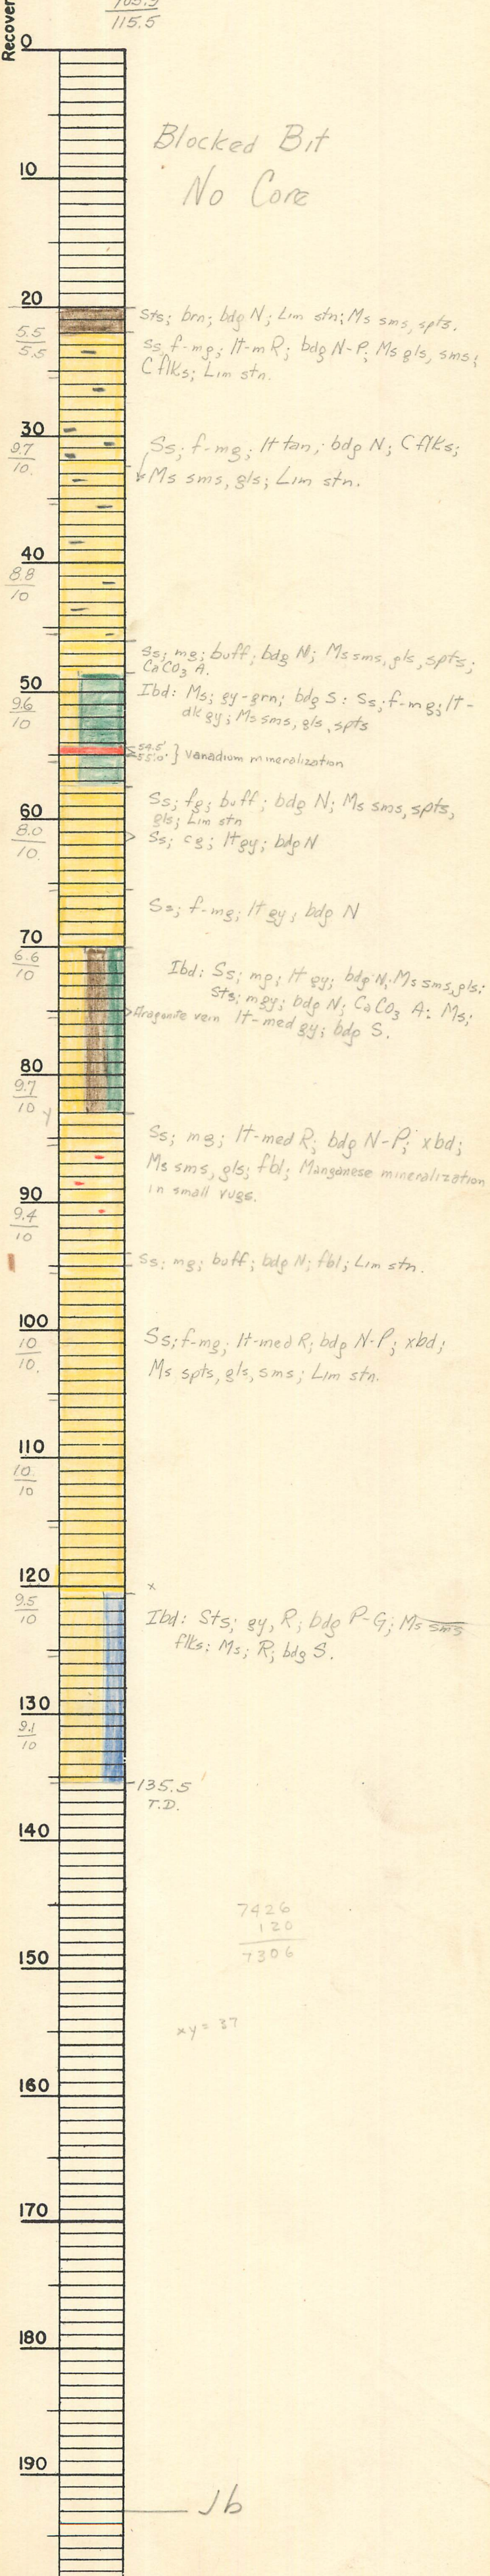 Recover
105.5
115.5
0
Blocked Bit
10
No Core
20
Sts; brn; bdg N; Lim stn; Ms sms, spts.
5.5
5.5
Ss; f-mg; lt-m R; bdg N-P; Ms gls, sms;
C flks; Lim stn.
30
9.7
10.
Ss; f-mg; lt tan; bdg N; C flks;
Ms sms, gls; Lim stn.
40
8.8
10
Ss; mg; buff; bdg N; Ms sms, gls, spts;
CaCO3 A.
50
9.6
10
Ibd: Ms; gy-grn; bdg S: Ss; f-mg; lt-
dk gy; Ms sms, gls, spts
54.5'
55.0' } Vanadium mineralization
60
8.0
10.
Ss; fg; buff; bdg N; Ms sms, spts,
gls; Lim stn
Ss; cg; lt gy; bdg N
Ss; f-mg; lt gy; bdg N
70
6.6
10
Ibd: Ss; mg; lt gy; bdg N; Ms sms, gls:
Sts; mgy; bdg N; CaCO3 A: Ms;
Aragonite vein lt-med gy; bdg S.
80
9.7
10 y
Ss; mg; lt-med R; bdg N-P; xbd;
Ms sms, gls; fbl; Manganese mineralization
in small vugs.
90
9.4
10
Ss; mg; buff; bdg N; fbl; Lim stn.
100
10
10.
Ss; f-mg; lt-med R; bdg N-P; xbd;
Ms spts, gls, sms; Lim stn.
110
10.
10
120
x
9.5
10
Ibd: Sts; gy, R; bdg P-G; Ms sms
flks: Ms; R; bdg S.
130
9.1
10
135.5
T.D.
140
7426
120
7306
150
xy = 37
160
170
180
190
Jb